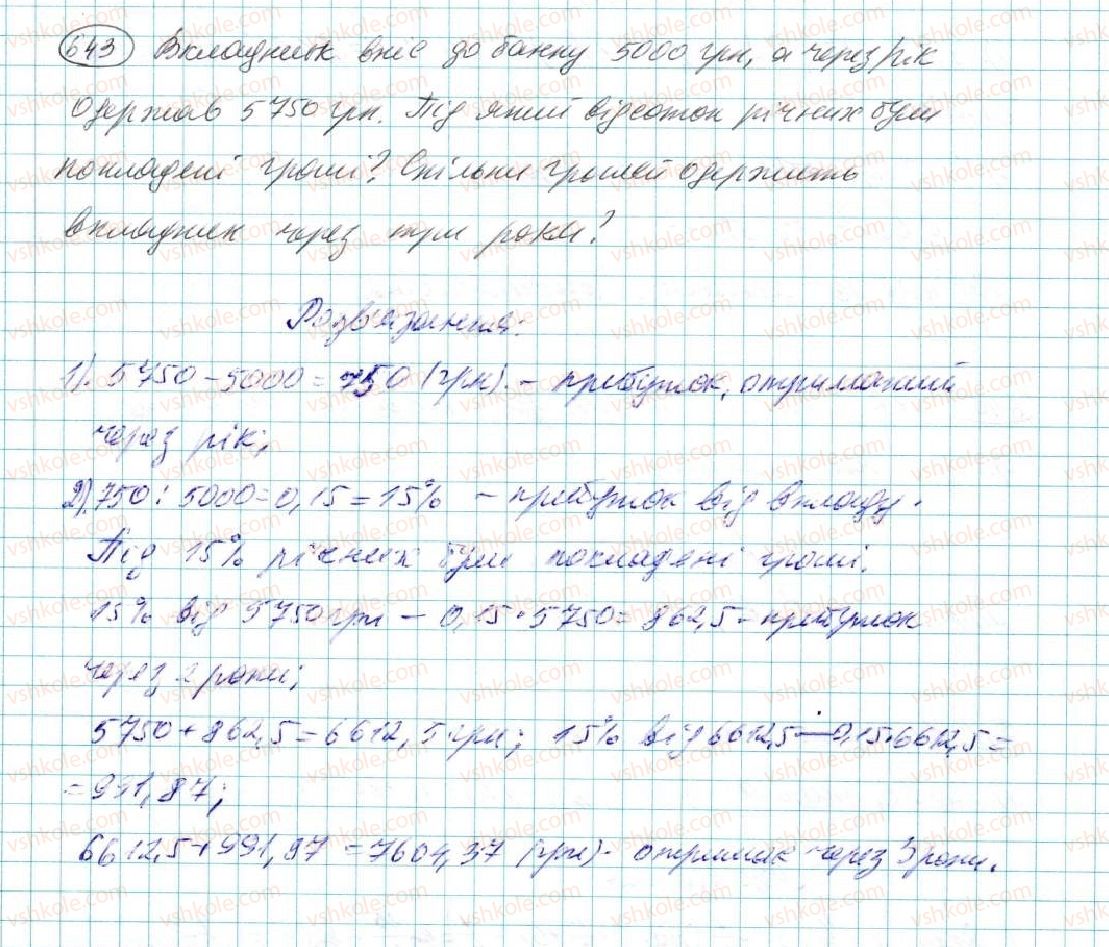 643 Вкладник вніс до банку 5000 грн, а через рік
одержав 5750 грн. Під який відсоток річних були
покладені гроші? Скільки грошей одержить
вкладник через три роки?
Розв'язання:
1). 5750 - 5000 = 750 (грн). - прибуток, отриманий
через рік;
2). 750 : 5000 = 0,15 = 15% - прибуток від вкладу.
Під 15% річних були покладені гроші.
15% від 5750 грн - 0,15 · 5750 = 862,5 - прибуток
через 2 роки;
5750 + 862,5 = 6612,5 грн; 15% від 6612,5 - 0,15 · 6612,5 =
= 991,87;
6612,5 + 991,87 = 7604,37 (грн) - отримає через 3 роки.